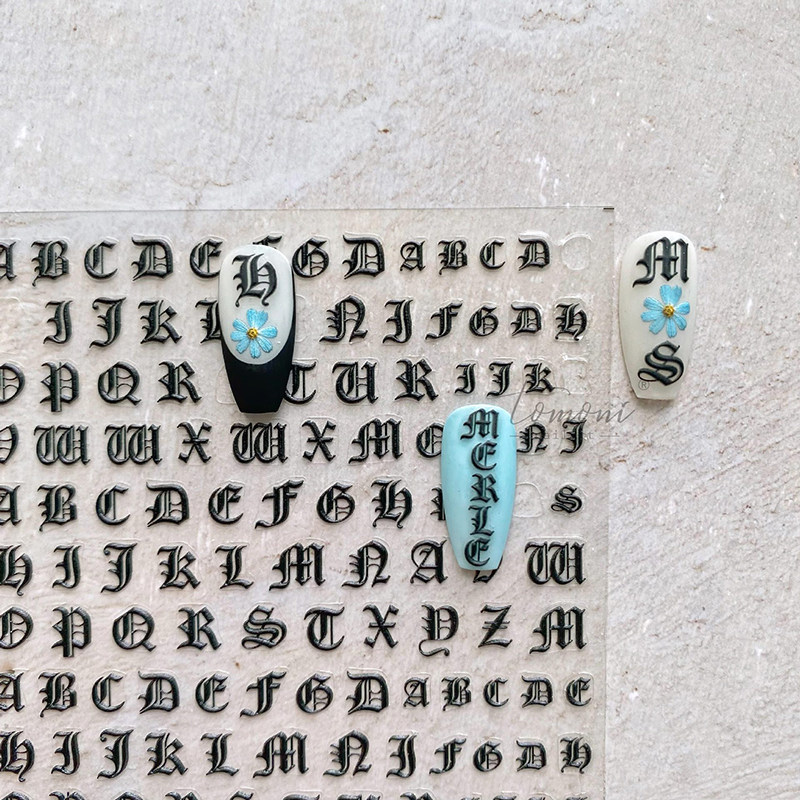 A B C D E F G D A B C D
I J K L N I F G D H
O P Q R T U R I J K
Y W W X W X M O N J
A B C D E F G H S
H I J K L M N A W
O P Q R S T X Y Z M
A B C D E F G D A B C D E
H I J K L M N J F G D H
H
M
S
MERLE
tomoni